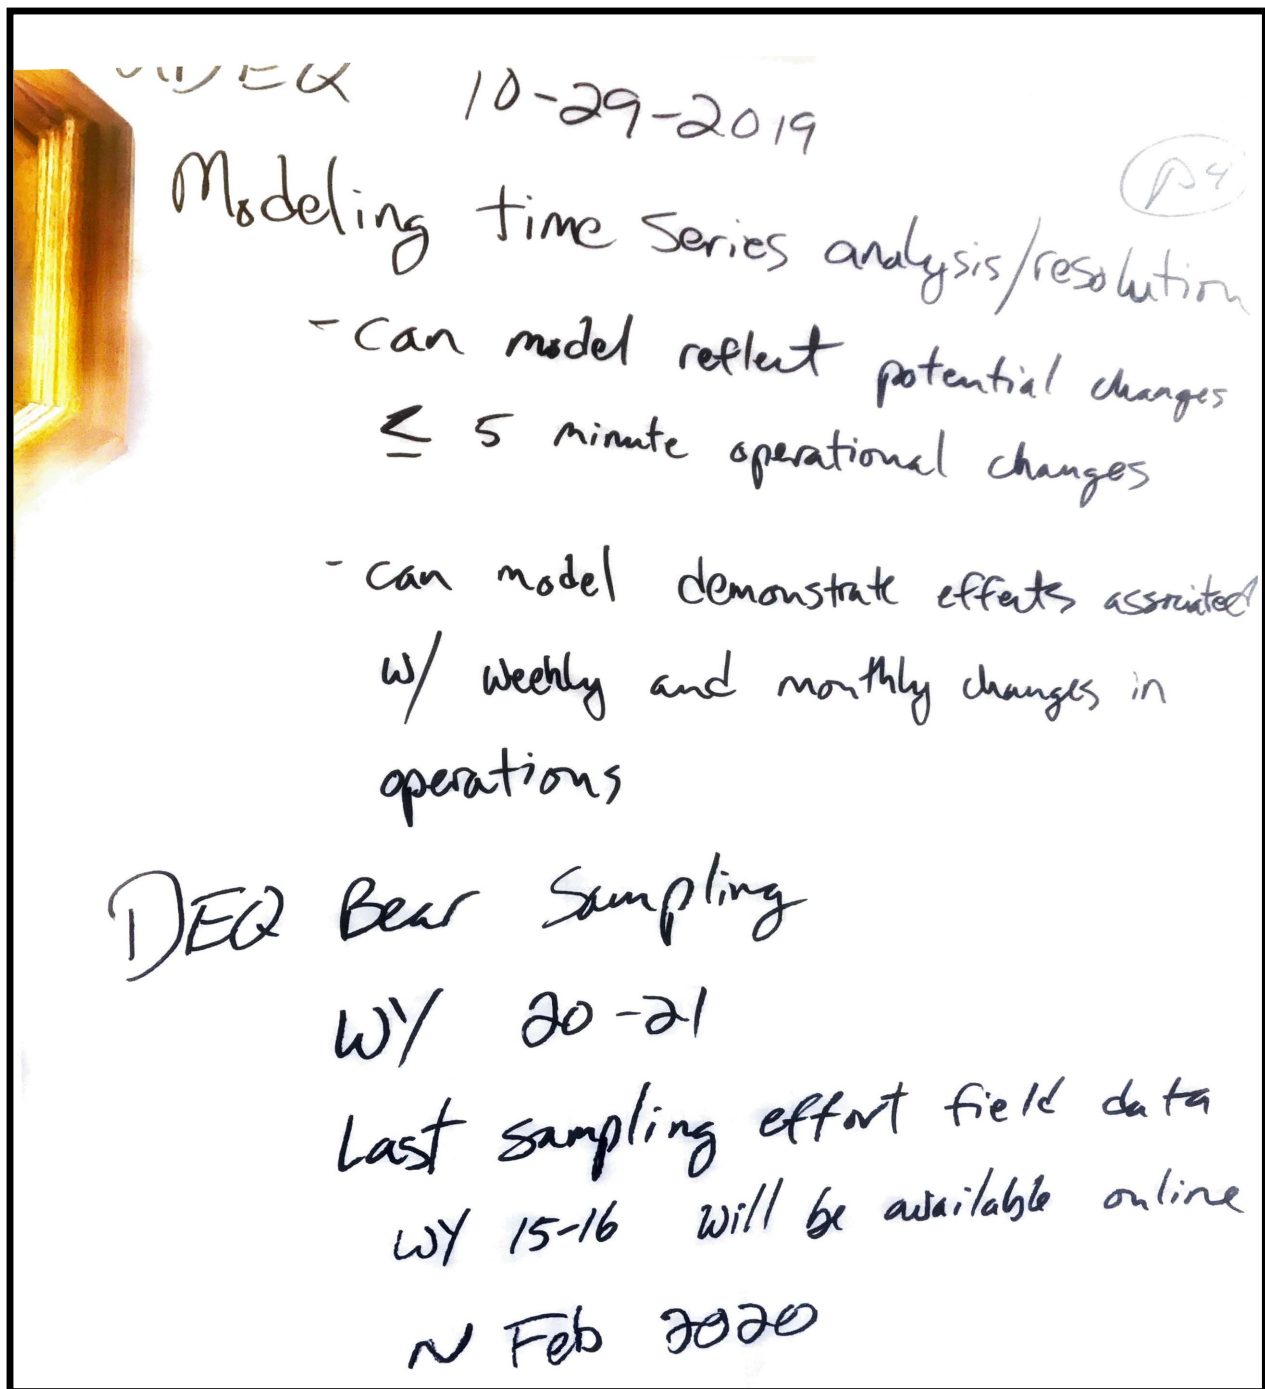 10-29-2019
p4
Modeling time series analysis/resolution
- can model reflect potential changes
≤ 5 minute operational changes
- can model demonstrate effects associated
w/ weekly and monthly changes in
operations
DEQ Bear Sampling
WY 20-21
Last sampling effort field data
WY 15-16 will be available online
~ Feb 2020